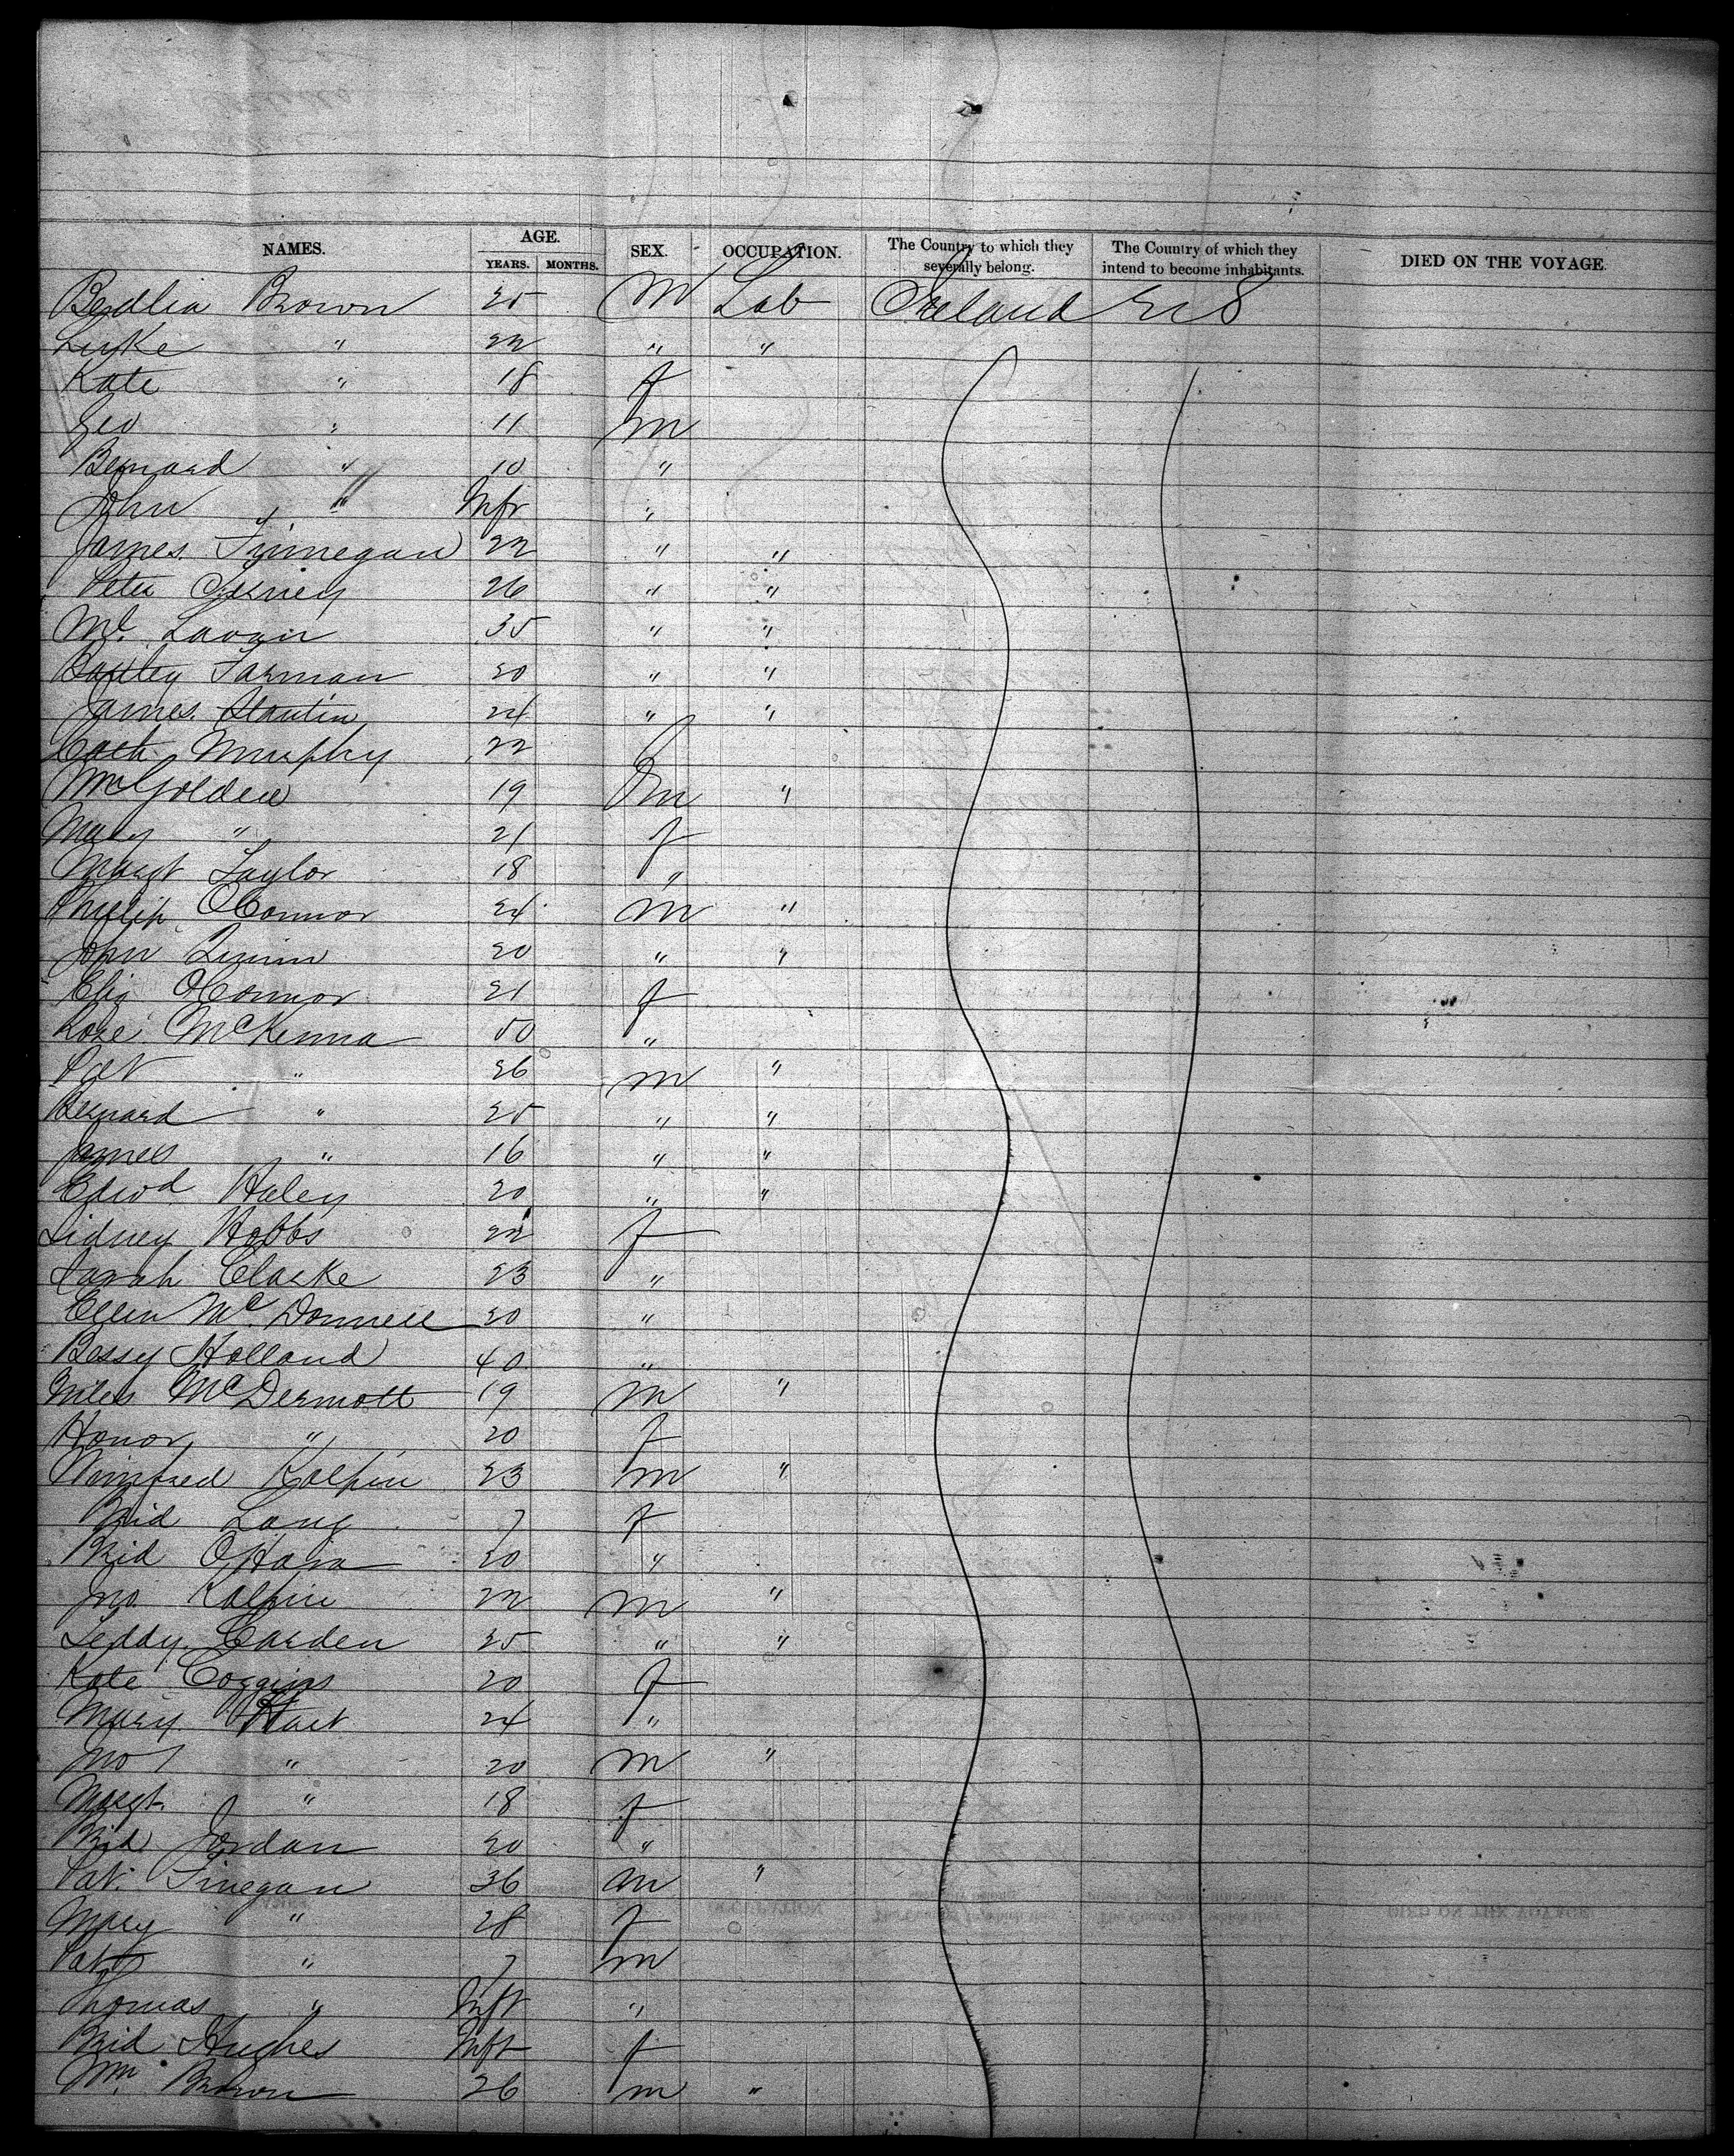 NAMES. AGE. YEARS. MONTHS. SEX. OCCUPATION. The Country to which they severally belong. The Country of which they intend to become inhabitants. DIED ON THE VOYAGE.
Bedlia Brown 25 M Lab Ireland U S
Luke " 22 " "
Kate " 18 f
Geo " 11 m
Bernard " 10 "
John " Inft "
James Finnegan 22 " "
Peter 26 " "
Mc 35 " "
Farman 20 " "
James 24 " "
Cath Murphy 22 f
Golden 19 m "
Mary " 21 f
Margt Taylor 18 "
Phillip OConnor 24 m "
John Quinn 20 " "
Eliz OConnor 21 f
Rose McKenna 50 "
Pat " 26 m "
Bernard " 25 " "
James " 16 " "
Edwd Haley 20 " "
Sidney Hobbs 22 f
Sarah Clarke 23 "
Ellen McDonnell 20 "
Bessy Holland 40 "
Miles McDermott 19 m "
Honor " 20 f
Winifred Kalpin 23 m "
Brid Lang 7 f
Brid OHara 20 "
Jno Kalpin 22 m "
Teddy Carden 25 " "
Kate Coggins 20 f
Mary Hart 24 "
" 20 m "
Margt " 18 f
Brid Jordan 20 "
Pat. Finegan 36 m "
Mary " 28 f
Pat " 7 m
Thomas " Inft "
Brid Hughes Inft f
Wm Brown 26 m "